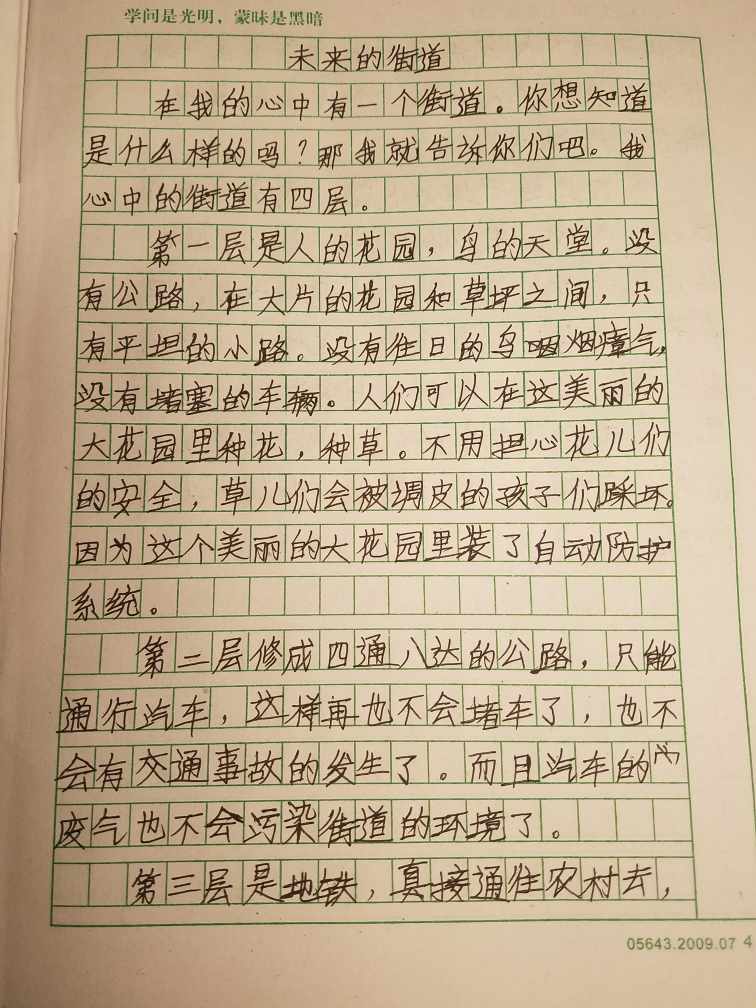 学问是光明，蒙昧是黑暗
未来的街道
在我的心中有一个街道。你想知道
是什么样的吗？那我就告诉你们吧。我
心中的街道有四层。
第一层是人的花园，鸟的天堂。没
有公路，在大片的花园和草坪之间，只
有平坦的小路。没有往日的乌烟瘴气，
没有堵塞的车辆。人们可以在这美丽的
大花园里种花，种草。不用担心花儿们
的安全，草儿们会被调皮的孩子们踩坏。
因为这个美丽的大花园里装了自动防护
系统。
第二层修成四通八达的公路，只能
通行汽车，这样再也不会堵车了，也不
会有交通事故的发生了。而且汽车的
废气也不会污染街道的环境了。
第三层是地铁，真接通往农村去，
05643.2009.07 4